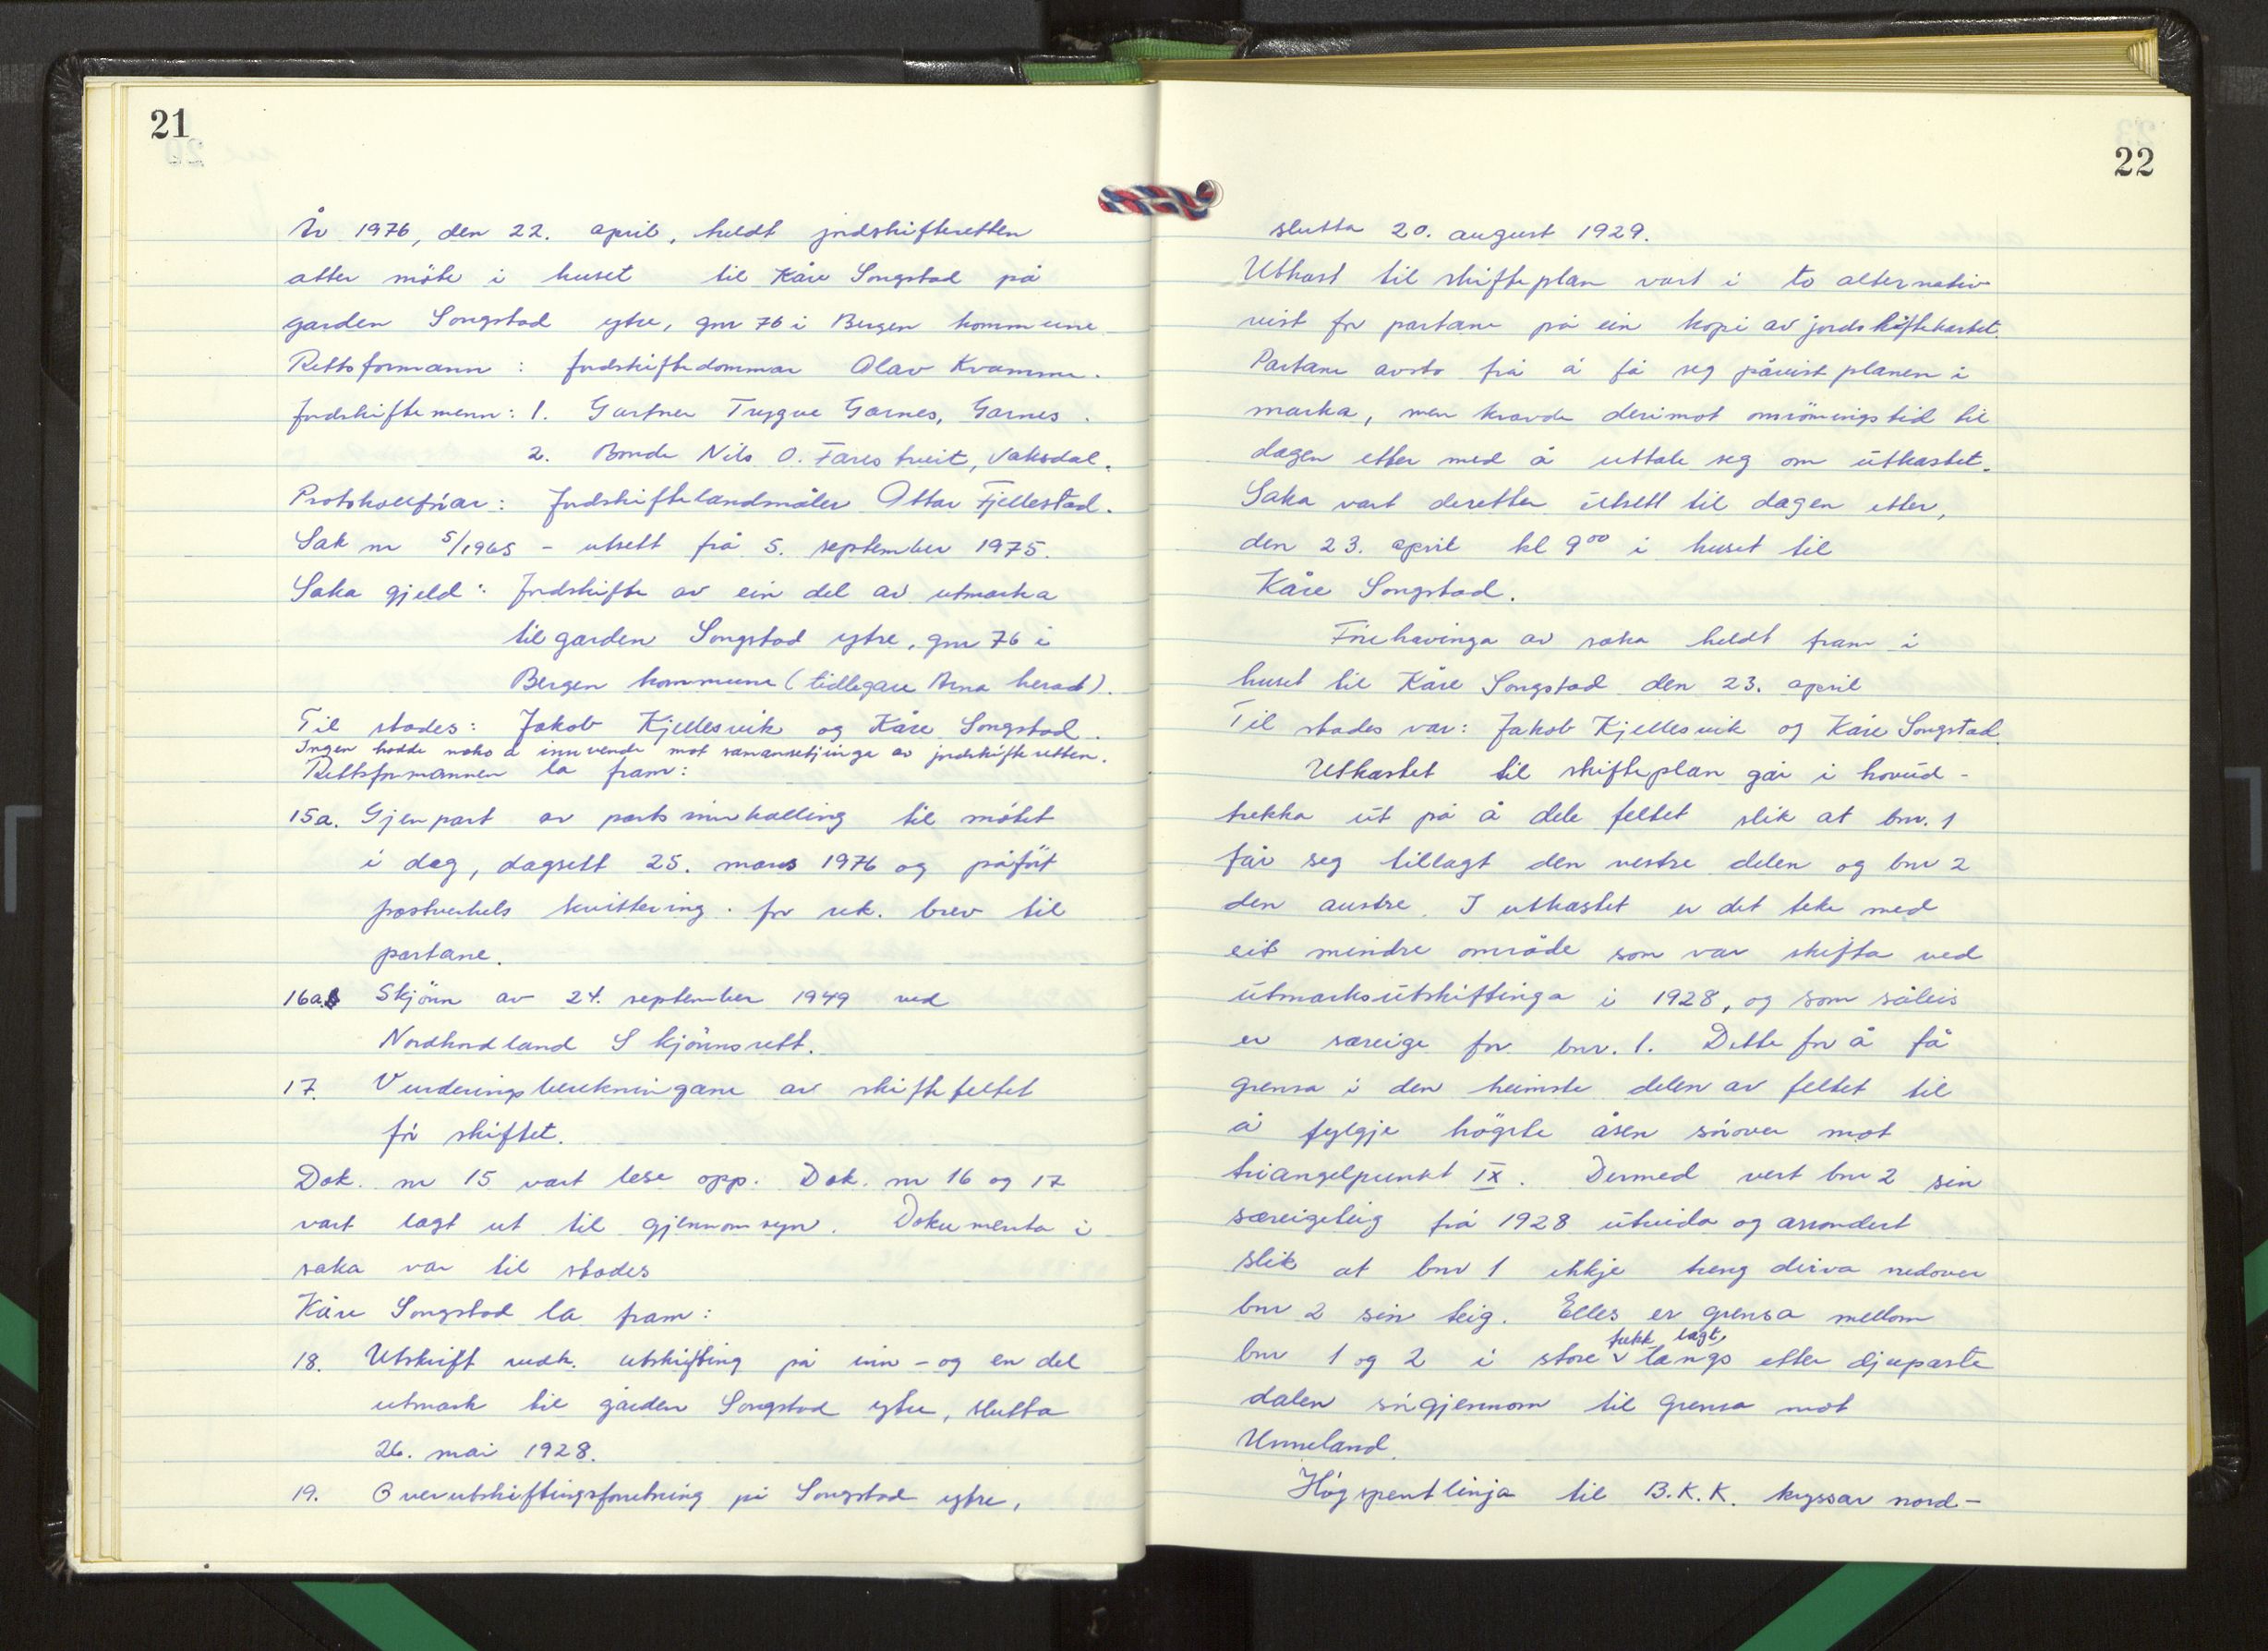 21
År 1976, den 22. april, heldt jordskifteretten
atter møte i huset til Kåre Songstad på
garden Songstad ytre, gnr 76 i Bergen kommune
Rettsformann: Jordskiftedommar Olav Kvamme.
Jordskiftemenn: 1. Gartner Trygve Garnes, Garnes.
2. Bonde Nils O. Farestveit, Vaksdal.
Protokollførar: Jordskiftelandmåler Ottar Fjellestad.
Sak nr 5/1965 - utsett frå 5. september 1975.
Saka gjeld: Jordskifte av ein del av utmarka
til garden Songstad ytre, gnr 76 i
Bergen kommune (tidlegare Arna herad).
Til stades: Jakob Kjellesvik og Kåre Songstad.
Ingen hadde noko å innvende mot samansetjinga av jordskifteretten.
Rettsformannen la fram:
15a. Gjenpart av partsinnkalling til møtet
i dag, dagsett 25. mars 1976 og påført
postverkets kvittering for rek. brev til
partane.
16a. Skjønn av 24. september 1949 ved
Nordhordland Skjønnsrett.
17. Vurderingsberekningane av skiftefeltet
før skiftet.
Dok. nr 15 vart lese opp. Dok. nr 16 og 17
vart lagt ut til gjennomsyn. Dokumenta i
saka var til stades
Kåre Songstad la fram:
18. Utskrift vedk. utskifting på inn- og en del
utmark til gården Songstad ytre, slutta
26. mai 1928.
19. Overutskiftingsforretning på Songstad ytre,
22
slutta 20. august 1929.
Utkast til skifteplan vart i to alternativ
vist for partane på ein kopi av jordskiftekartet.
Partane avsto frå å få seg påvist planen i
marka, men kravde derimot områingstid til
dagen etter med å uttale seg om utkastet.
Saka vart deretter utsett til dagen etter,
den 23. april kl 9⁰⁰ i huset til
Kåre Songstad.
Førehavinga av saka heldt fram i
huset til Kåre Songstad den 23. april
Til stades var: Jakob Kjellesvik og Kåre Songstad.
Utkastet til skifteplan går i hovud-
trekka ut på å dele feltet slik at bnr. 1
får seg tillagt den vestre delen og bnr 2
den austre. I utkastet er det teke med
eit mindre område som var skifta ved
utmarksutskiftinga i 1928, og som såleis
er særeige for bnr. 1. Dette for å få
grensa i den heimste delen av feltet til
å fylgje høgste åsen sørover mot
triangelpunkt IX. Dermed vert bnr 2 sin
særeigeteig frå 1928 utvida og arrondert
slik at bnr 1 ikkje treng driva nedover
bnr 2 sin teig. Elles er grensa mellom
bnr 1 og 2 i store trekk lagt langs etter djupaste
dalen sørgjennom til grensa mot
Unneland.
Høgspentlinja til B.K.K. kryssar nord-